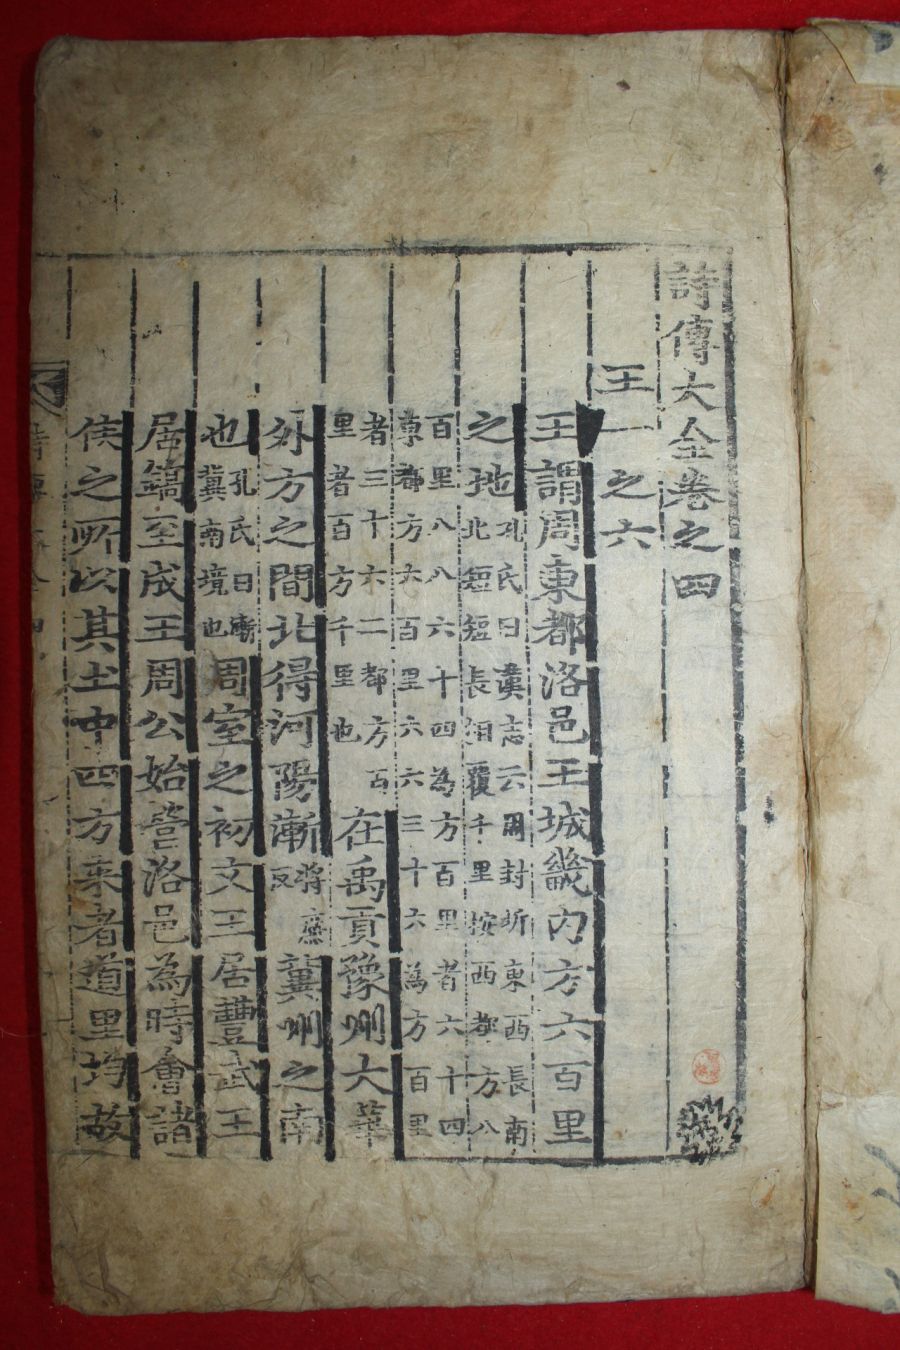 詩傳大全卷之四
王一之六
王謂周東都洛邑王城畿內方六百里
之地孔氏曰漢志云周封圻東西長南
北短短長相覆千里按西都方八
百里八八六十四為方百里者六十四
東都方六百里六六三十六為方百里
者三十六二都方百
里者百方千里也在禹貢豫州大華
外方之間北得河陽漸將廉
反冀州之南
也孔氏曰漸
冀南境也周室之初文王居豐武王
居鎬至成王周公始營洛邑為時會諸
侯之所以其土中四方來者道里均故